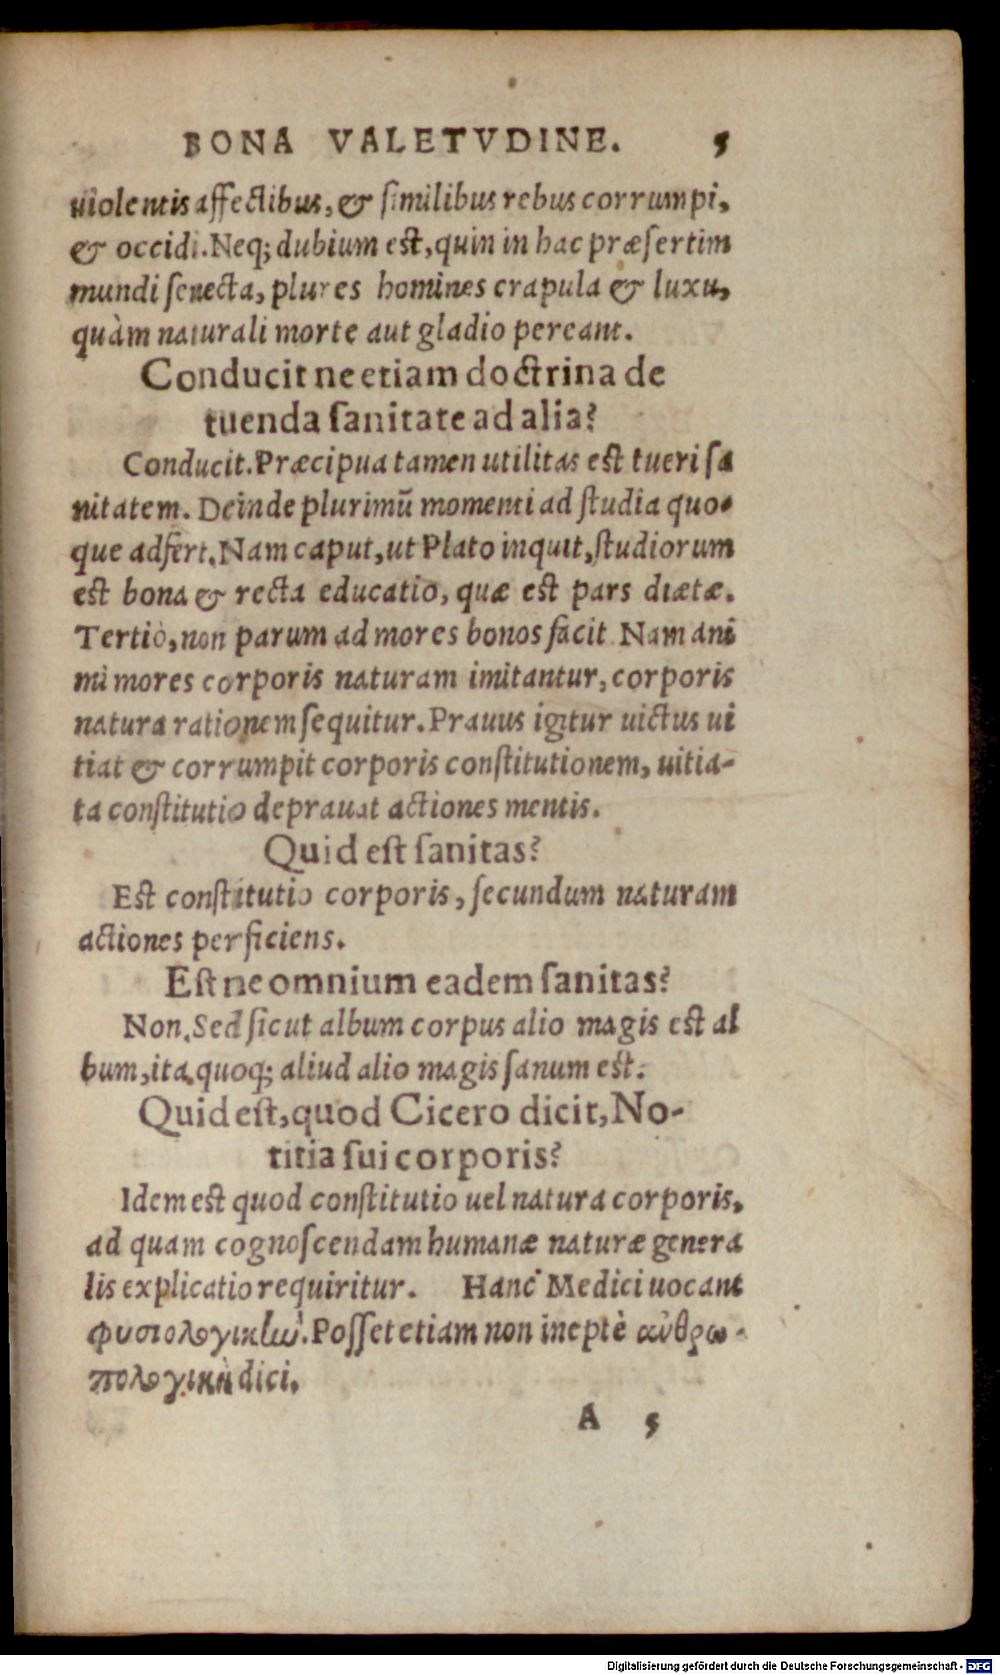 BONA VALETVDINE. 5
uiolentis affectibus, & similibus rebus corrumpi,
& occidi. Neq; dubium est, quin in hac præsertim
mundi senecta, plures homines crapula & luxu,
quàm naturali morte aut gladio pereant.
Conducit ne etiam doctrina de
tuenda sanitate ad alia?
Conducit. Præcipua tamen utilitas est tueri sa
nitatem. Deinde plurimũ momenti ad studia quo-
que adfert. Nam caput, ut Plato inquit, studiorum
est bona & recta educatio, quæ est pars diætæ.
Tertiò, non parum ad mores bonos facit Nam ani
mi mores corporis naturam imitantur, corporis
natura rationem sequitur. Prauus igitur uictus ui
tiat & corrumpit corporis constitutionem, uitia-
ta constitutio deprauat actiones mentis.
Quid est sanitas?
Est constitutio corporis, secundum naturam
actiones perficiens.
Est ne omnium eadem sanitas?
Non. Sed sicut album corpus alio magis est al
bum, ita quoq; aliud alio magis sanum est.
Quid est, quod Cicero dicit, No-
titia sui corporis?
Idem est quod constitutio uel natura corporis,
ad quam cognoscendam humanæ naturæ genera
lis explicatio requiritur. Hanc Medici uocant
φυσιολογικὴν. Posset etiam non ineptè ἀνθρω-
πολογικὴ dici.
A 5
Digitalisierung gefördert durch die Deutsche Forschungsgemeinschaft - DFG